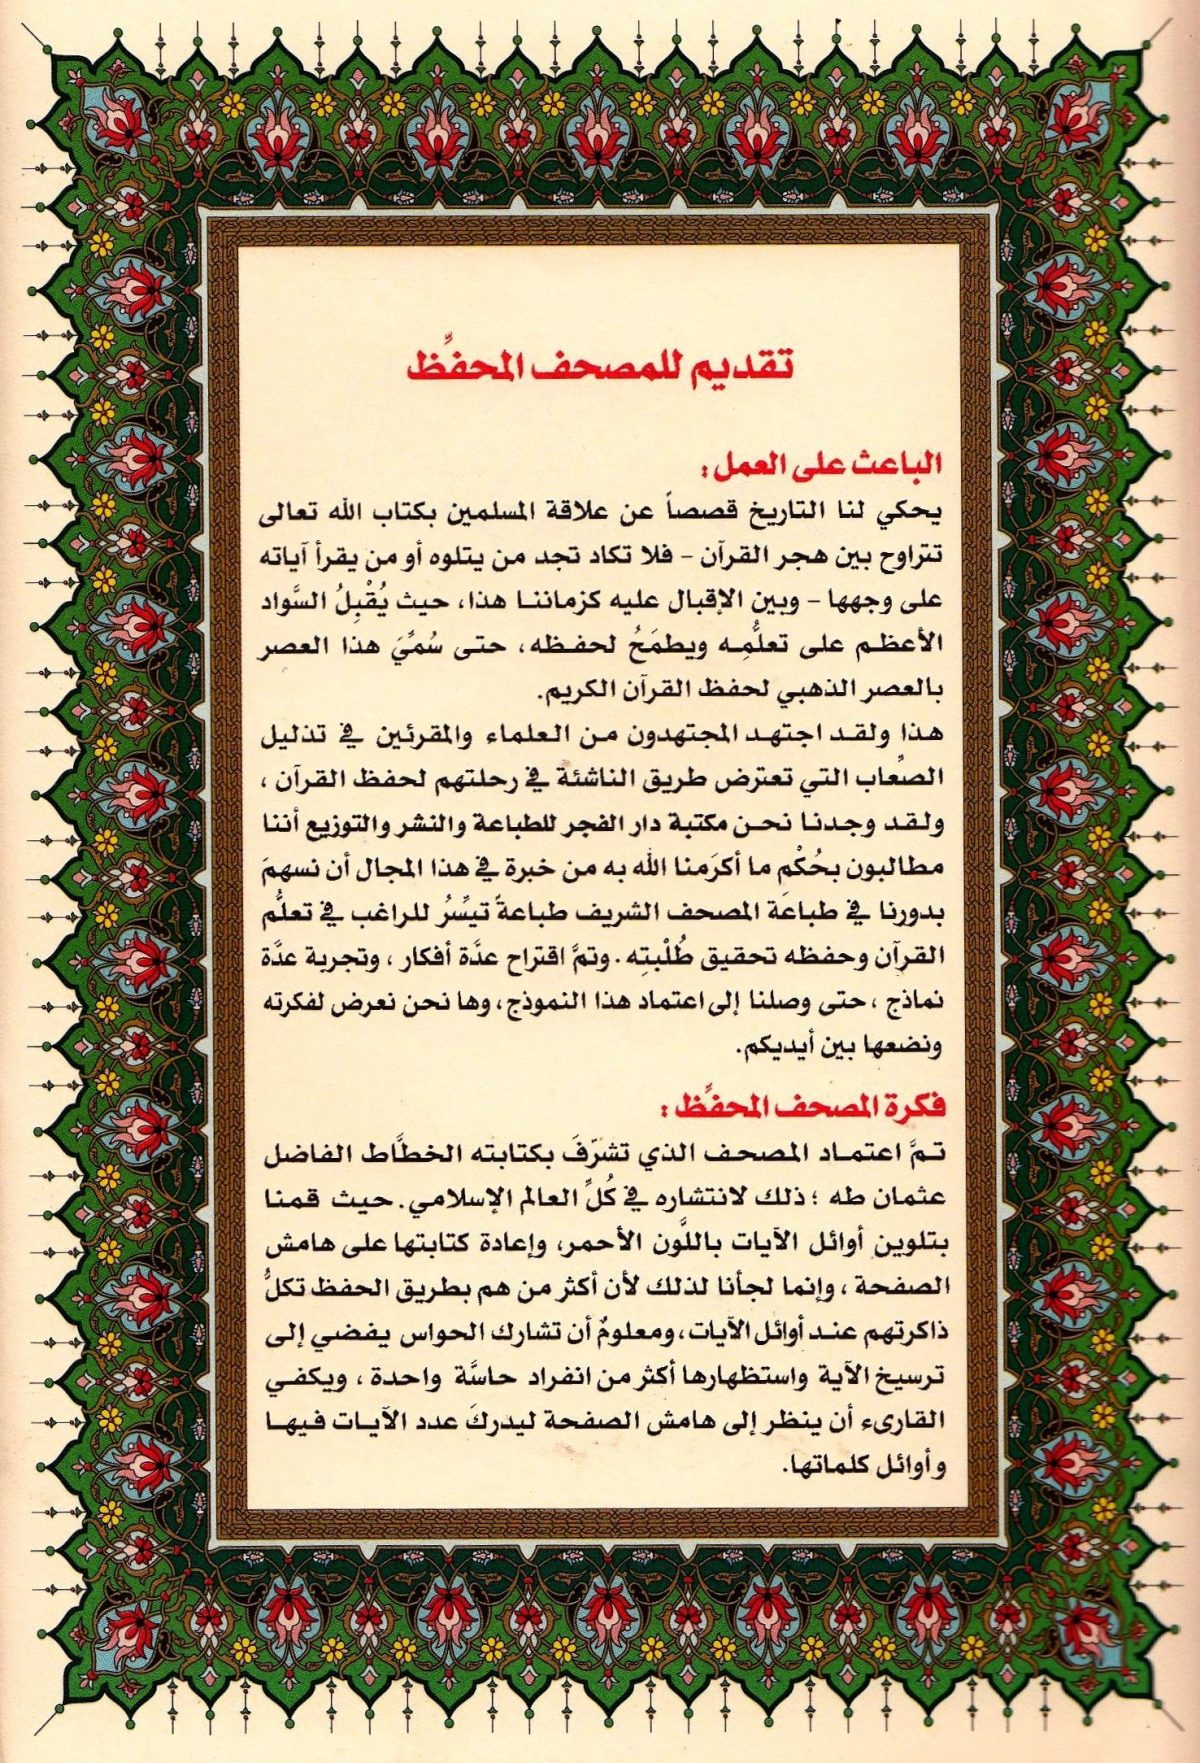 تقديم للمصحف المحفِّظ
الباعث على العمل:
يحكي لنا التاريخ قصصاً عن علاقة المسلمين بكتاب الله تعالى
تتراوح بين هجر القرآن - فلا تكاد تجد من يتلوه أو من يقرأ آياته
على وجهها - وبين الإقبال عليه كزماننا هذا، حيث يُقْبِلُ السَّواد
الأعظم على تعلُّمِه ويطمَحُ لحفظه، حتى سُمِّيَ هذا العصر
بالعصر الذهبي لحفظ القرآن الكريم.
هذا ولقد اجتهد المجتهدون من العلماء والمقرئين في تذليل
الصِّعاب التي تعترض طريق الناشئة في رحلتهم لحفظ القرآن ،
ولقد وجدنا نحن مكتبة دار الفجر للطباعة والنشر والتوزيع أننا
مطالبون بحُكْمِ ما أكرَمنا الله به من خبرة في هذا المجال أن نسهمَ
بدورنا في طباعة المصحف الشريف طباعةً تيسِّرُ للراغب في تعلُّم
القرآن وحفظه تحقيق طُلْبتِه . وتمَّ اقتراح عدَّة أفكار ، وتجربة عدَّة
نماذج ، حتى وصلنا إلى اعتماد هذا النموذج، وها نحن نعرض لفكرته
ونضعها بين أيديكم.
فكرة المصحف المحفِّظ :
تمَّ اعتماد المصحف الذي تشرّفَ بكتابته الخطَّاط الفاضل
عثمان طه ؛ ذلك لانتشاره في كُلِّ العالم الإسلامي. حيث قمنا
بتلوين أوائل الآيات باللَّون الأحمر، وإعادة كتابتها على هامش
الصفحة ، وإنما لجأنا لذلك لأن أكثر من هم بطريق الحفظ تكلُّ
ذاكرتهم عند أوائل الآيات، ومعلومٌ أن تشارك الحواس يفضي إلى
ترسيخ الآية واستظهارها أكثر من انفراد حاسَّة واحدة ، ويكفي
القارىء أن ينظر إلى هامش الصفحة ليدركَ عدد الآيات فيها
وأوائل كلماتها.